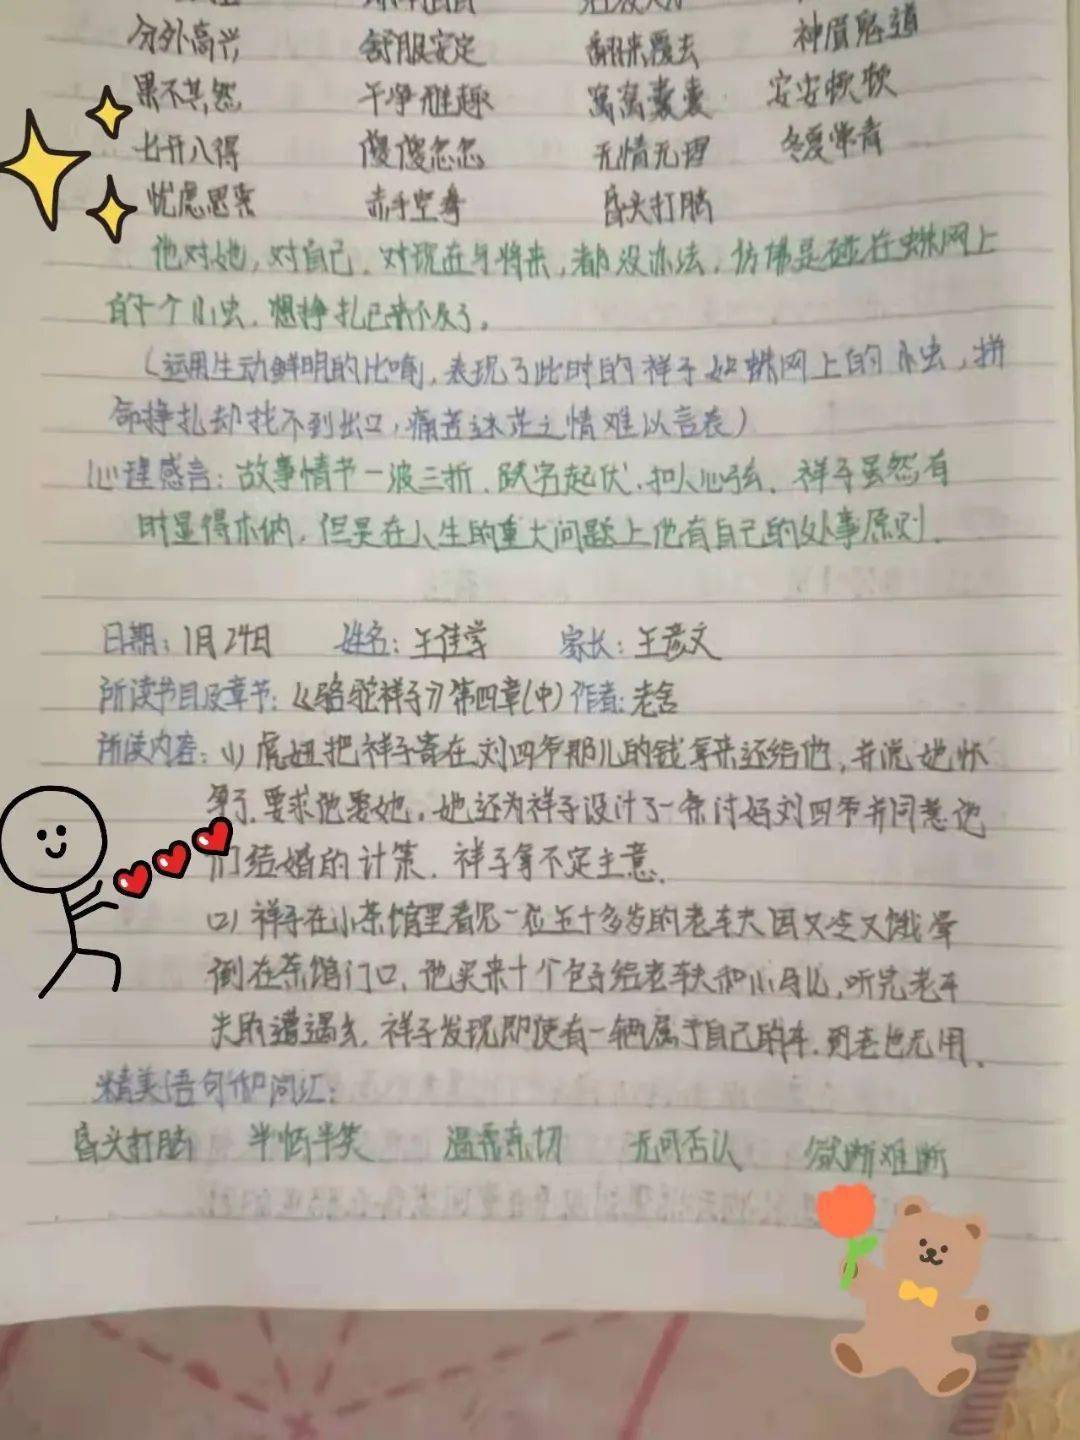 分外高兴 舒服安定 翻来覆去 神眉鬼道
果不其然 干净胜趣 窝窝囊囊 安安顿顿
七开八得 傻傻忽忽 无情无理 冬夏常青
忧虑思索 赤手空拳 昏头打脑
他对她，对自己，对现在与将来，都没办法，仿佛是碰在蛛网上
的一个小虫，想挣扎已来不及了。
（运用生动鲜明的比喻，表现了此时的祥子如蛛网上的小虫，拼
命挣扎却找不到出口，痛苦迷茫之情难以言表）
心理感言：故事情节一波三折、跌宕起伏、扣人心弦。祥子虽然有
时显得木讷，但是在人生的重大问题上他有自己的处事原则。
日期：1月24日 姓名：王佳学 家长：王彦文
所读书目及章节：《骆驼祥子》第四章(中) 作者：老舍
所读内容：(1) 虎妞把祥子寄在刘四爷那儿的钱拿来还给他，并说她怀
孕了，要求他娶她。她还为祥子设计了一条讨好刘四爷并同意他
们结婚的计策，祥子拿不定主意。
(2) 祥子在小茶馆里看见一位五十多岁的老车夫因又冷又饿晕
倒在茶馆门口，他买来十个包子给老车夫和小马儿，听完老车
夫的遭遇后，祥子发现即使有一辆属于自己的车，到老也无用。
精美语句和词汇：
昏头打脑 半恼半笑 温柔亲切 无可否认 欲断难断